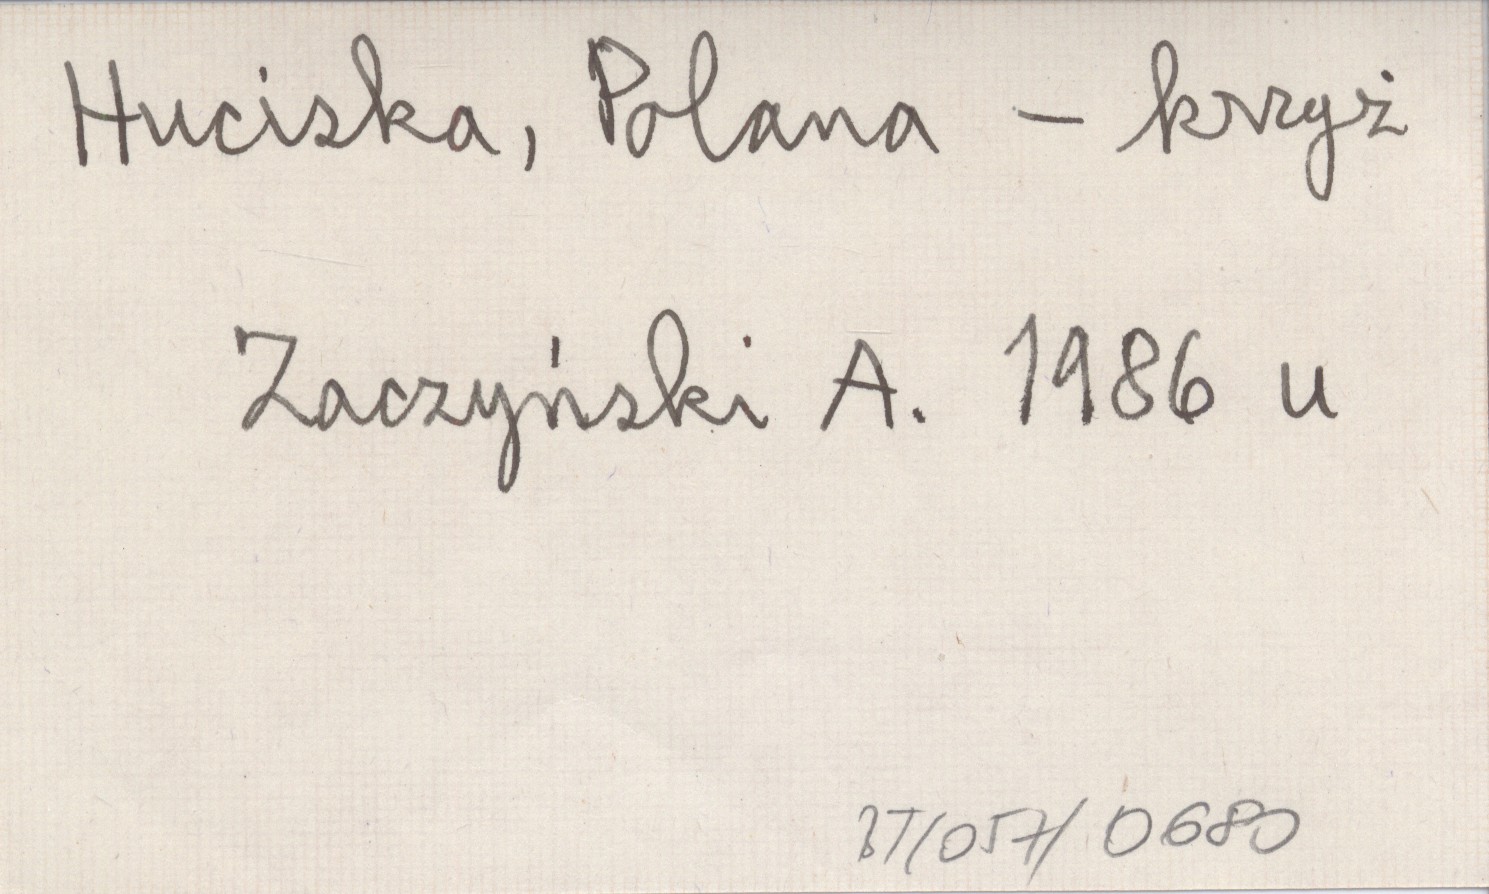 Huciska, Polana - krzyż
Zaczyński A. 1986 u
BT/057/0680